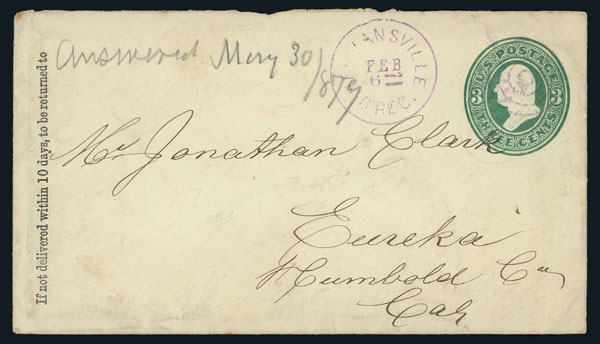 Answered May 30/879
ANSVILLE
FEB
6
OREG.
U.S. POSTAGE
3
3
THREE CENTS
If not delivered within 10 days, to be returned to
Mr Jonathan Clark
Eureka
Humbold Co
Cal